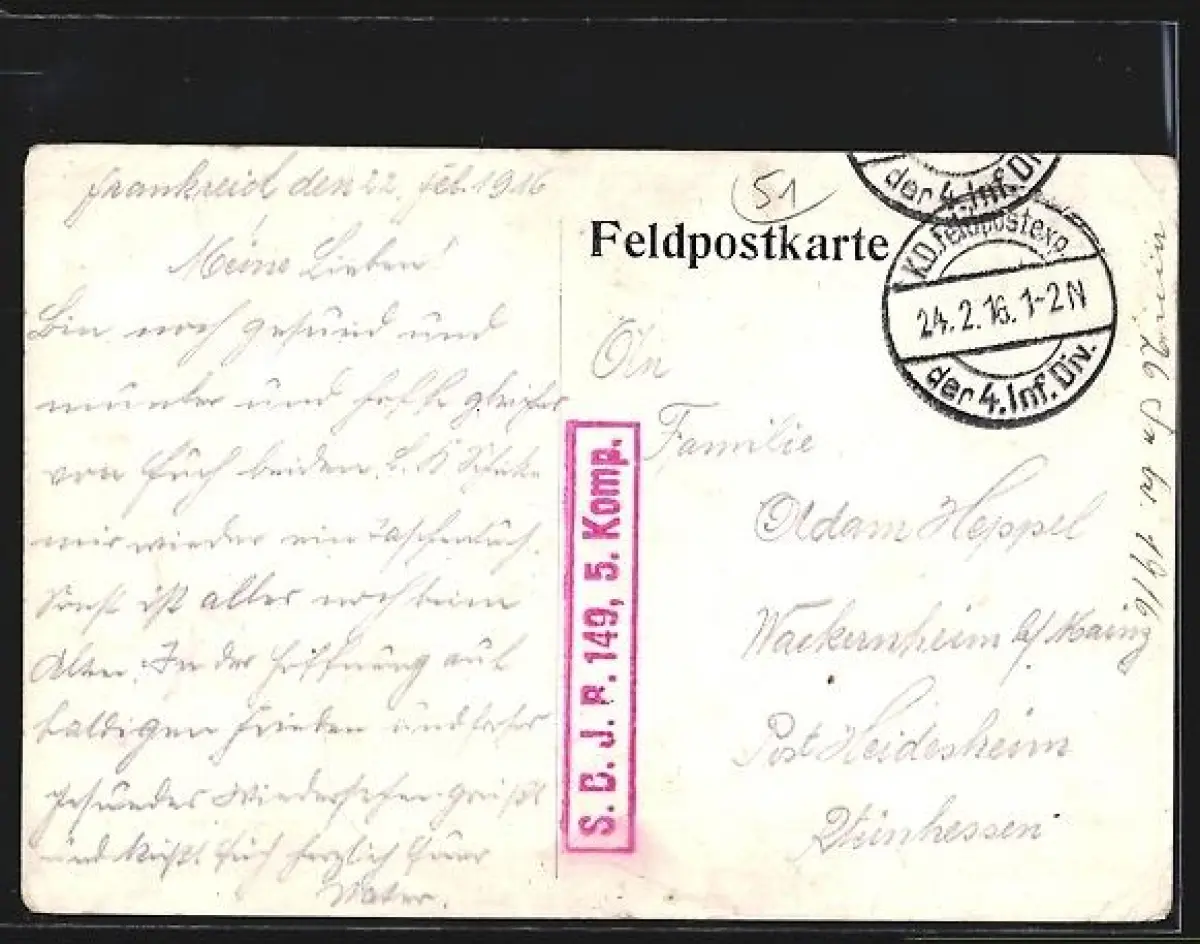 Frankreich den 22. Feb. 1916
Meine Lieben!
Bin noch gesund und
munter und hoffe gleiches
von Euch beiden. L. K. Schicke
mir wieder ein Taschentuch.
Sonst ist alles noch beim
Alten. In der Hoffnung auf
baldigen Frieden und
gesundes Wiedersehen grüßt
und küßt Euch herzlich Euer
Vater.
51
Feldpostkarte
der 4. Inf. Di
K.D. Feldpostexp.
24.2.16. 1-2N
der 4. Inf. Div.
An
Familie
Adam Heppel
Wackernheim b/ Mainz
Post Heidesheim
Rheinhessen
S. B. J. R. 149, 5. Komp.
26 1916